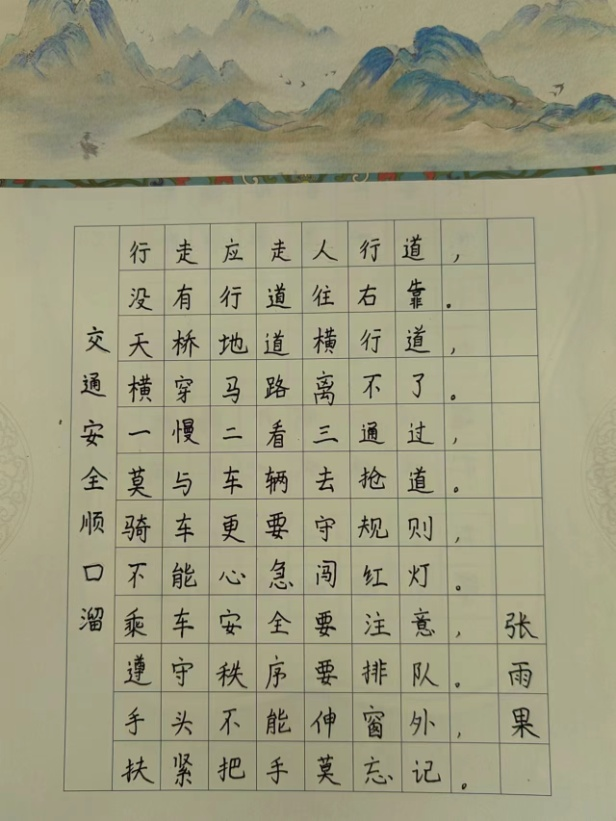 交通安全顺口溜
行走应走人行道，
没有行道往右靠。
天桥地道横行道，
横穿马路离不了。
一慢二看三通过，
莫与车辆去抢道。
骑车更要守规则，
不能心急闯红灯。
乘车安全要注意，
遵守秩序要排队。
手头不能伸窗外，
扶紧把手莫忘记。
张雨果